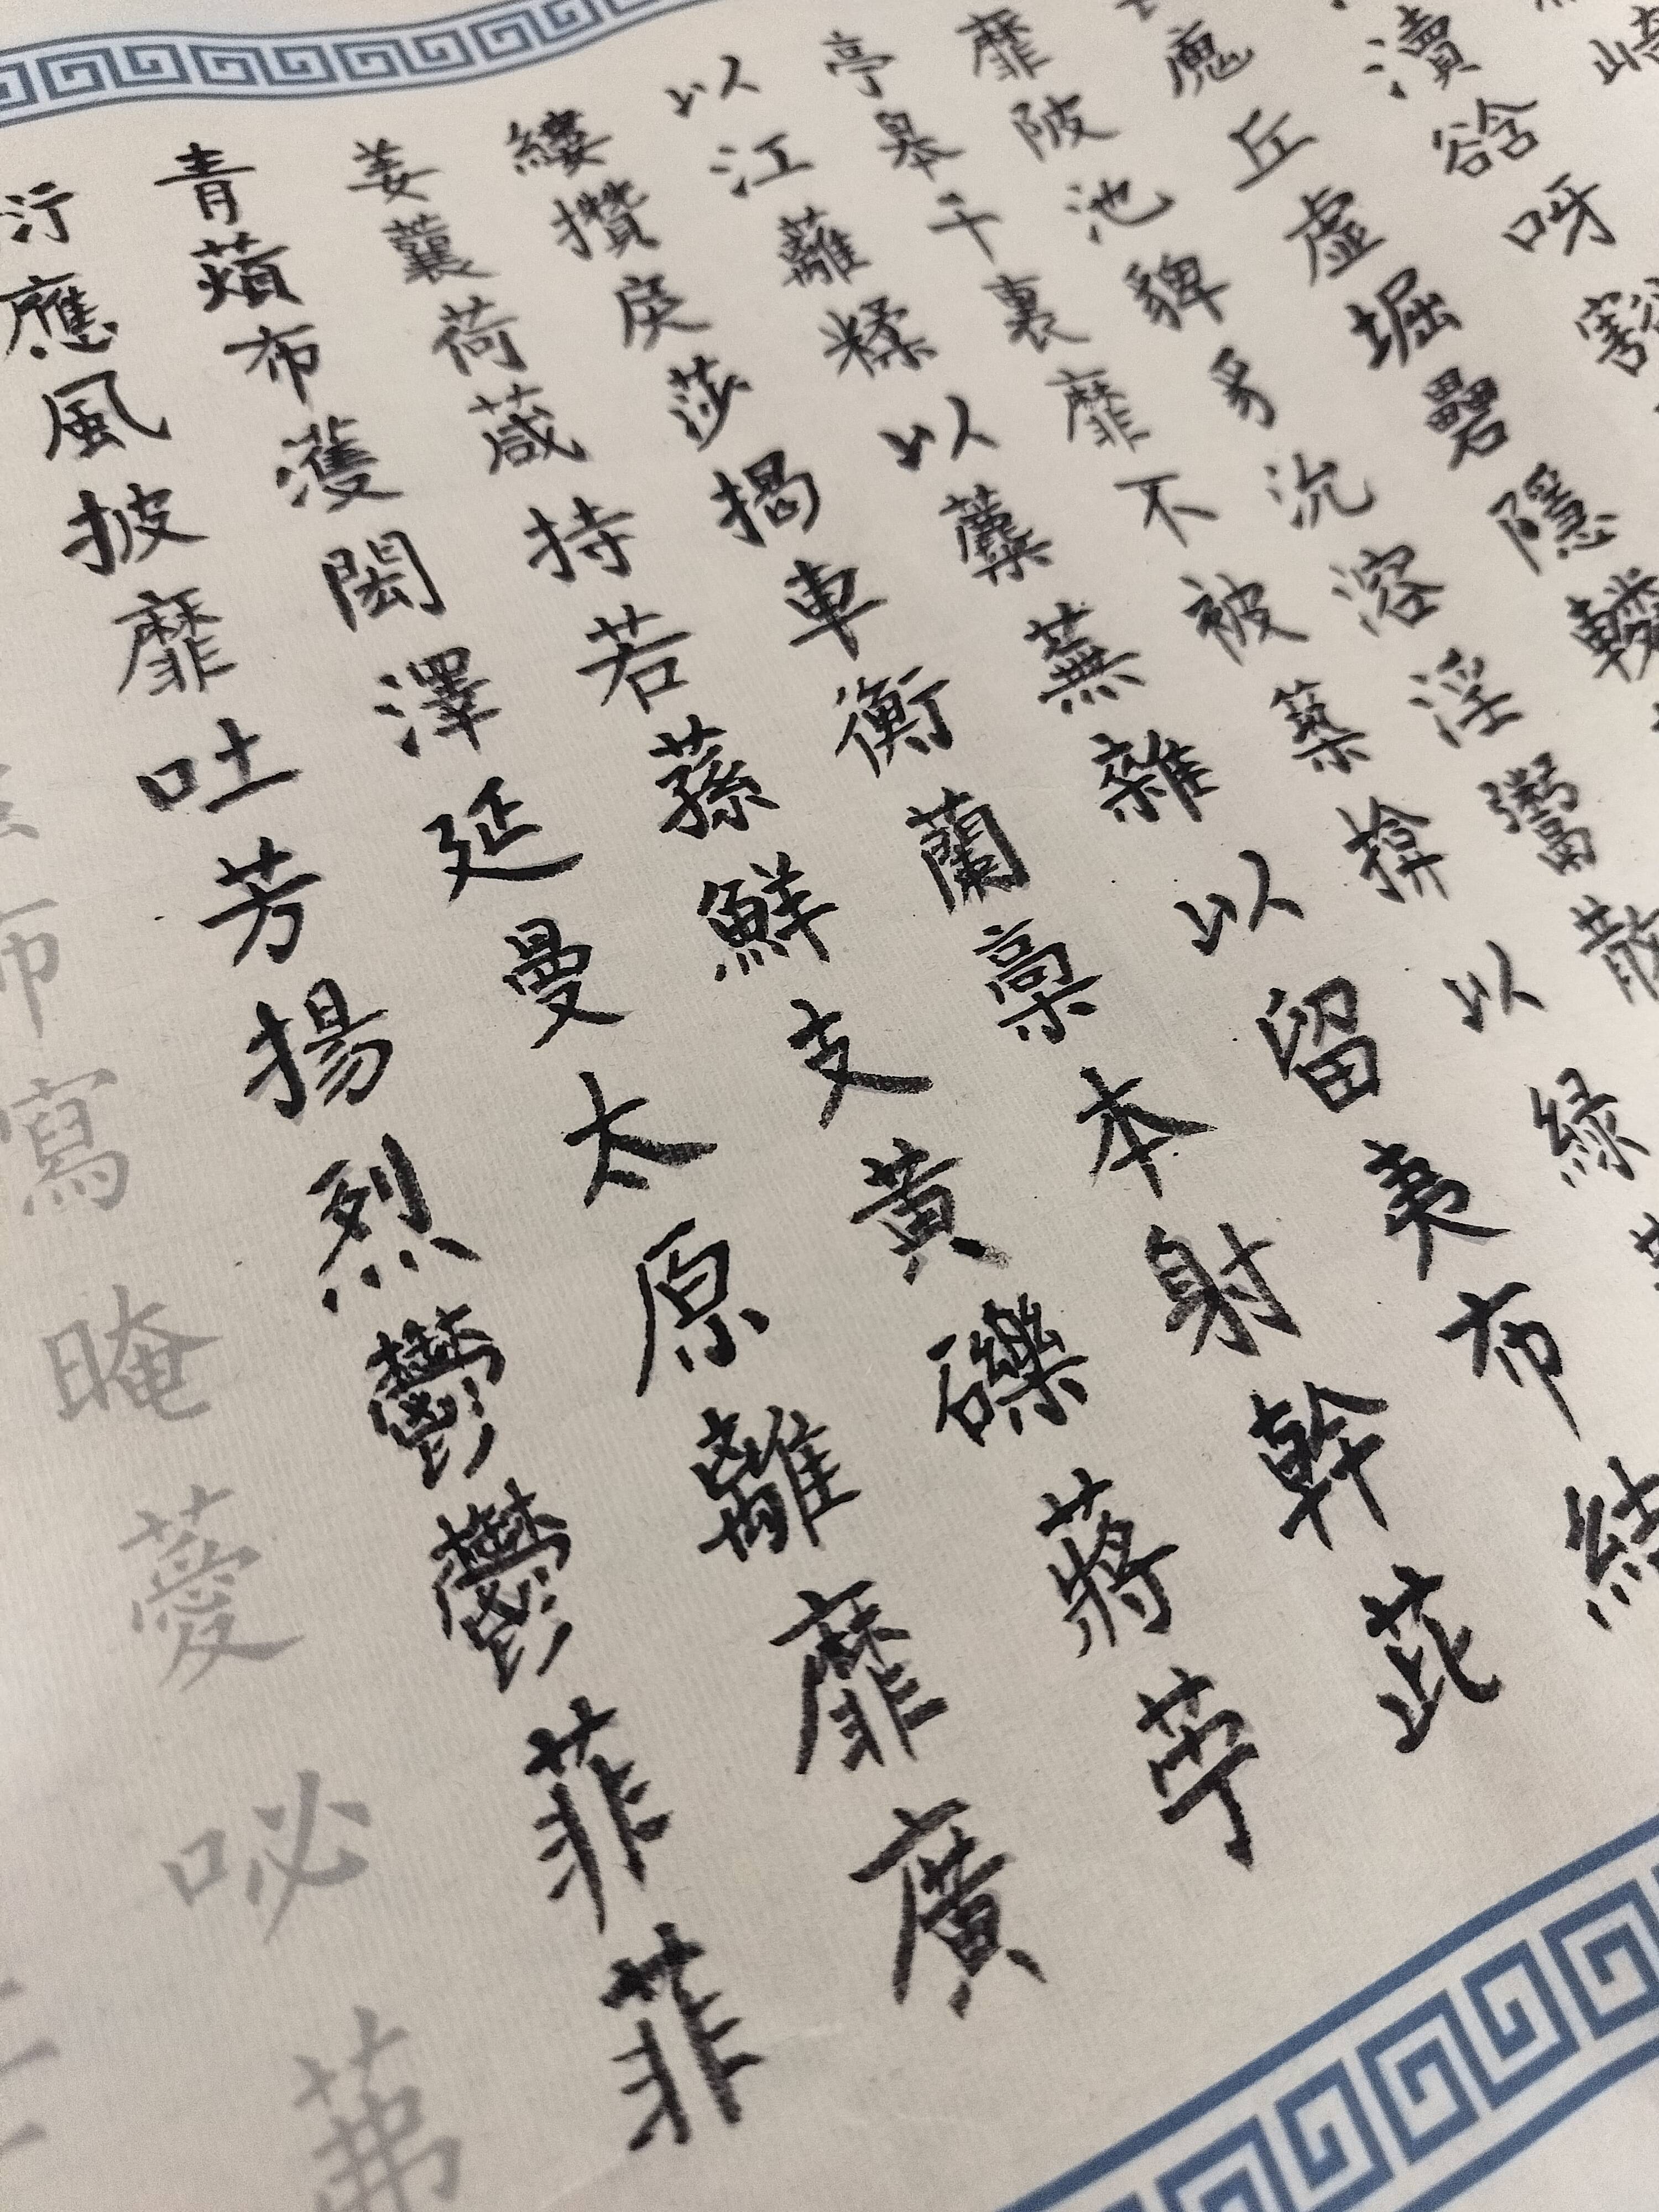 崎
瀆谽呀豁
廆丘虛堀礨隱轔
靡陂池貏豸沇溶淫鬻散
亭皋千裏靡不被築揜以綠
以江蘺糅以蘪蕪雜以留夷布結
縷攢戾莎揭車衡蘭稾本射幹茈
姜蘘荷葴持若蓀鮮支黃礫蔣芧
青薠布濩閎澤延曼太原離靡廣
衍應風披靡吐芳揚烈鬱鬱菲菲
布寫晻薆咇茀